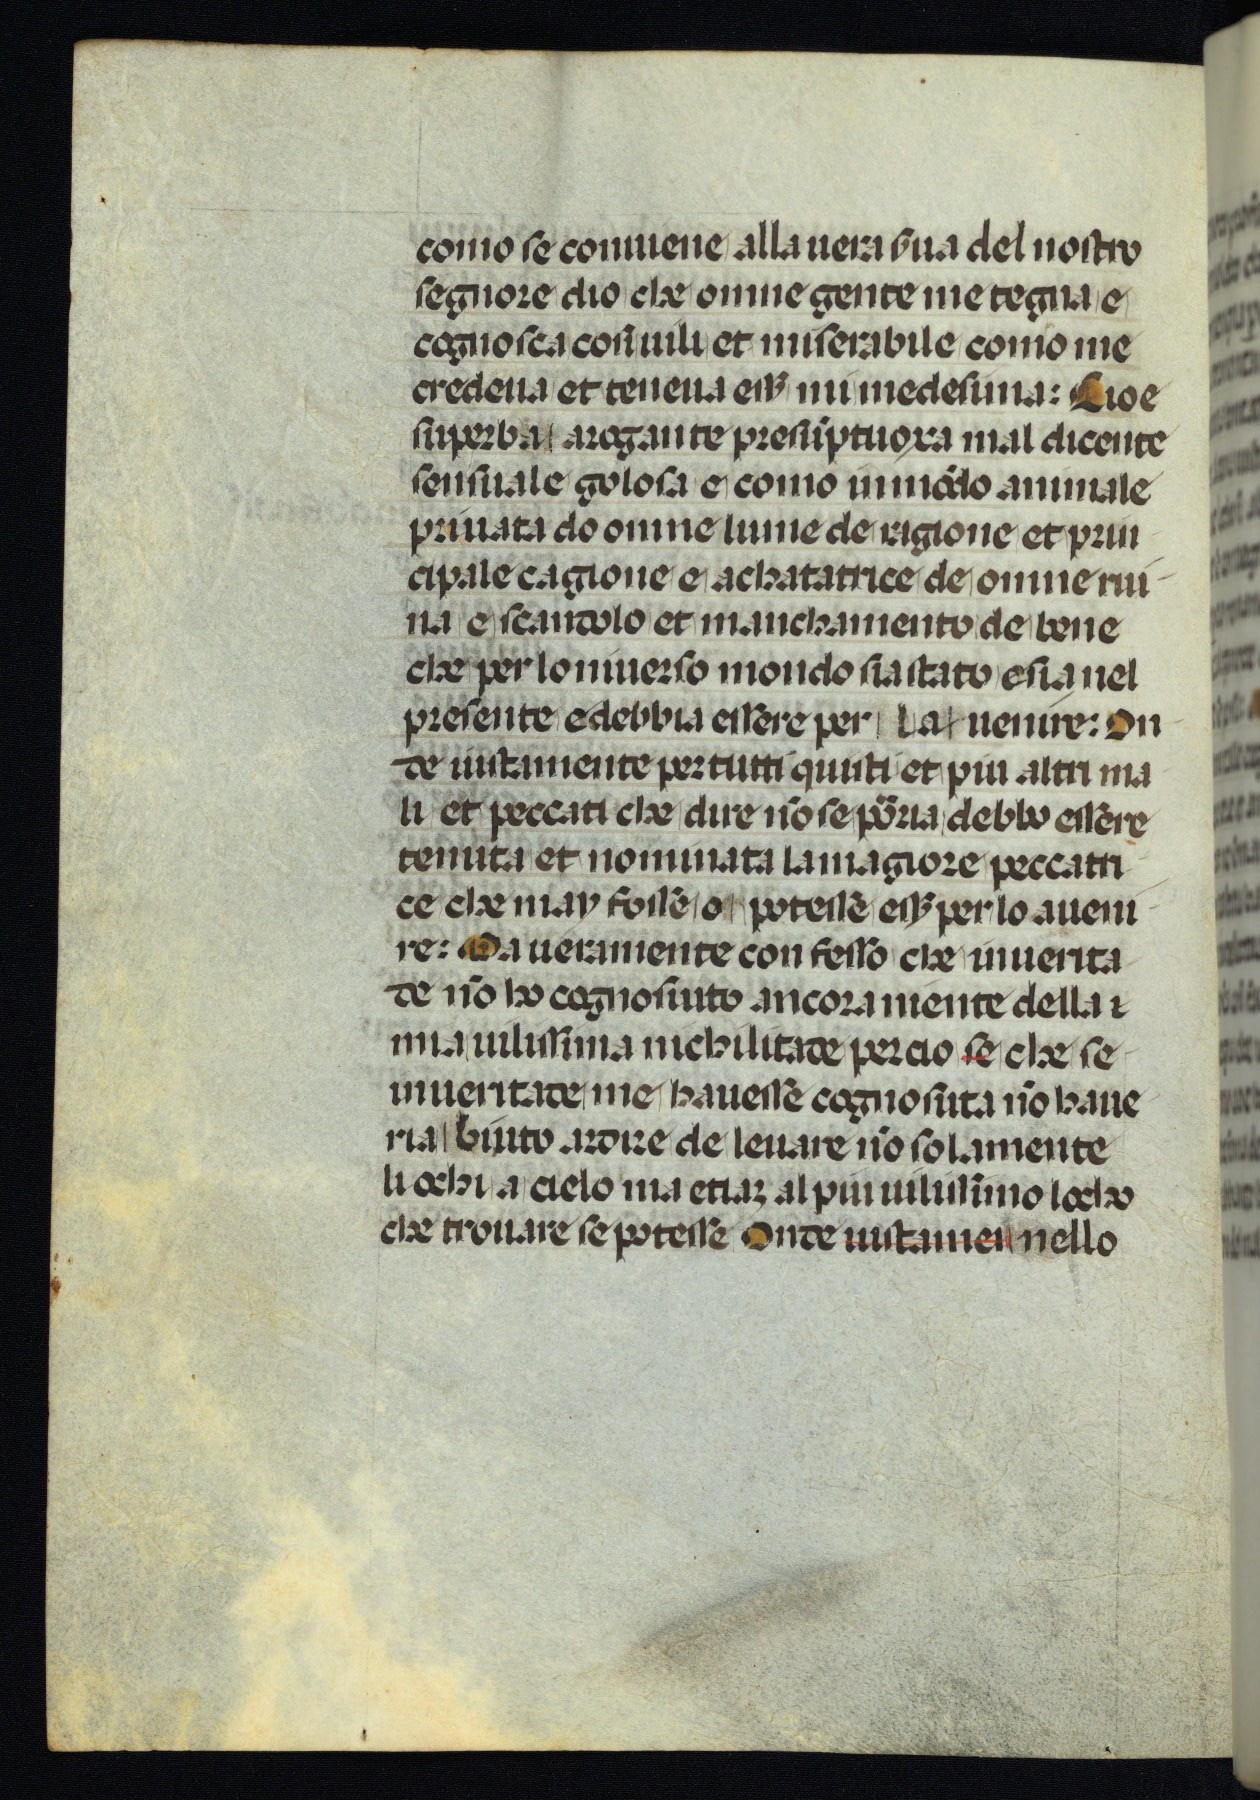 como se conuiene alla uera s̃ua del nostro
segnore dio che omne gente me tegna e
cognosca cosi uili et miserabile como me
credeua et teneua ess̃ mi medesima: Cioe
superba arogante presũptuoxa mal dicente
sensuale golosa e como immõdo animale
priuata do omne lume de ragione et prin
cipale cagione e achatatrice de omne rui
na e scandolo et manchamento de bene
che per lo niuerso mondo sia stato e sia nel
presente e debbia essere per la uenire: On
de iustamente per tutti quisti et piu altri ma
li et peccati che dire nõ se poria debbo essere
tenuta et nominata la magiore peccatri
ce che may fosse o potesse ess̃ per lo aueni
re: Ma ueramente confesso che inuerita
de nõ ho cognosiuto ancora niente della
mia uilissima nichilitade percio se che se
inueritade me hauesse cognosiuta nõ haue
ria biuto ardire de leuare nõ solamente
li ochi a cielo ma etiaz al piu uilissimo locho
che trouare se potesse Onde iustamen nello